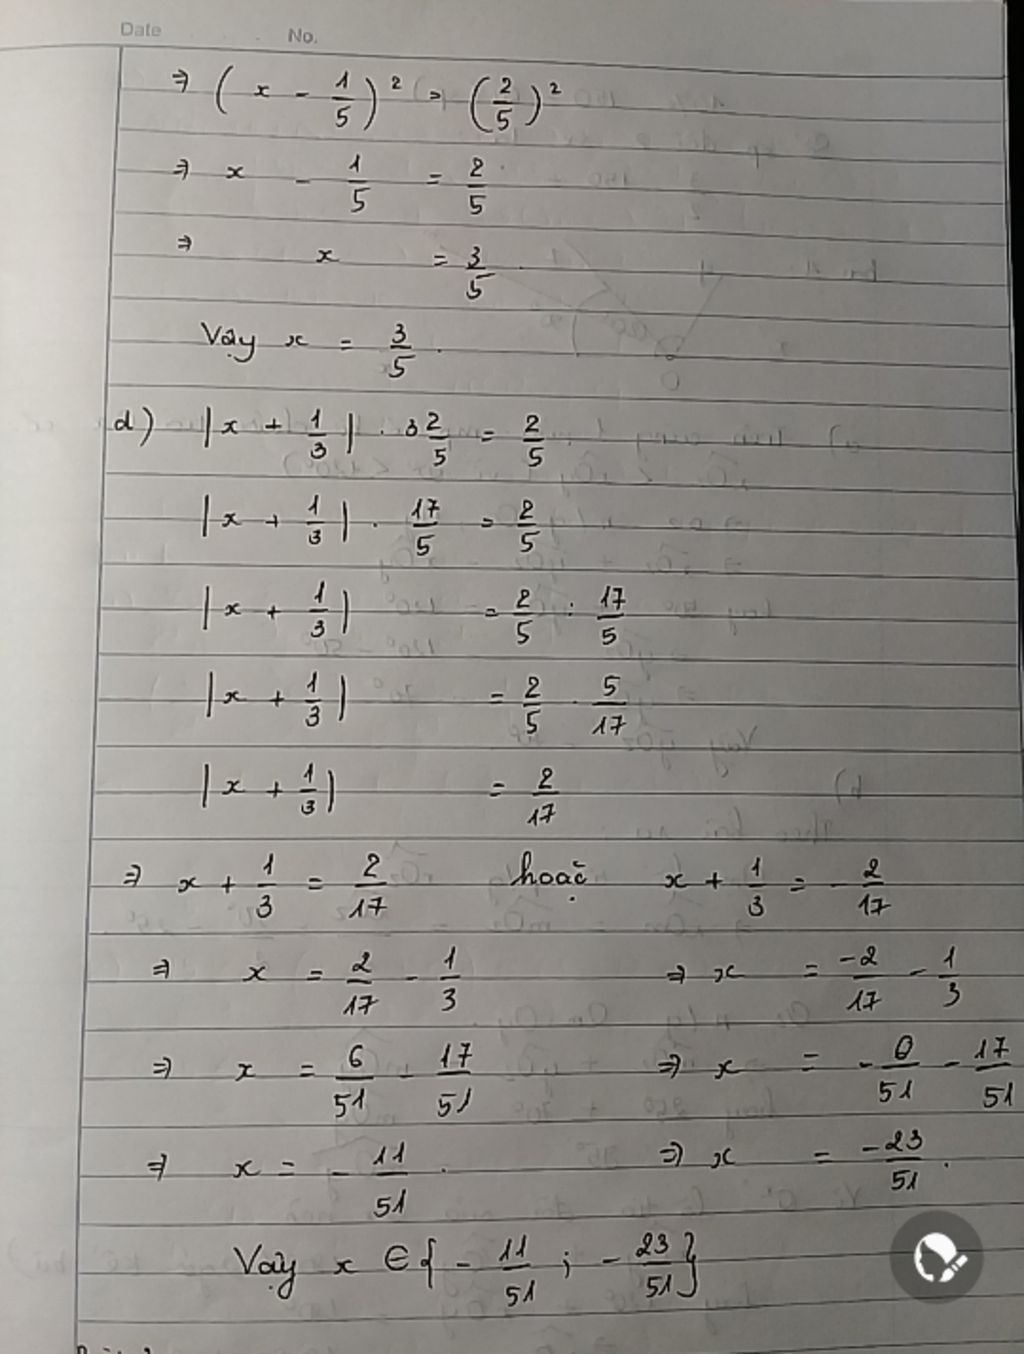 Date No.
⇒ (x - 1/5)² = (2/5)²
⇒ x - 1/5 = 2/5
⇒ x = 3/5
Vậy x = 3/5.
d) |x + 1/3| . 3 2/5 = 2/5
|x + 1/3| . 17/5 = 2/5
|x + 1/3| = 2/5 : 17/5
|x + 1/3| = 2/5 . 5/17
|x + 1/3| = 2/17
⇒ x + 1/3 = 2/17 hoặc x + 1/3 = - 2/17
⇒ x = 2/17 - 1/3 ⇒ x = -2/17 - 1/3
⇒ x = 6/51 - 17/51 ⇒ x = - /51 - 17/51
⇒ x = - 11/51. ⇒ x = -23/51.
Vậy x ∈ {- 11/51 ; - 23/51}